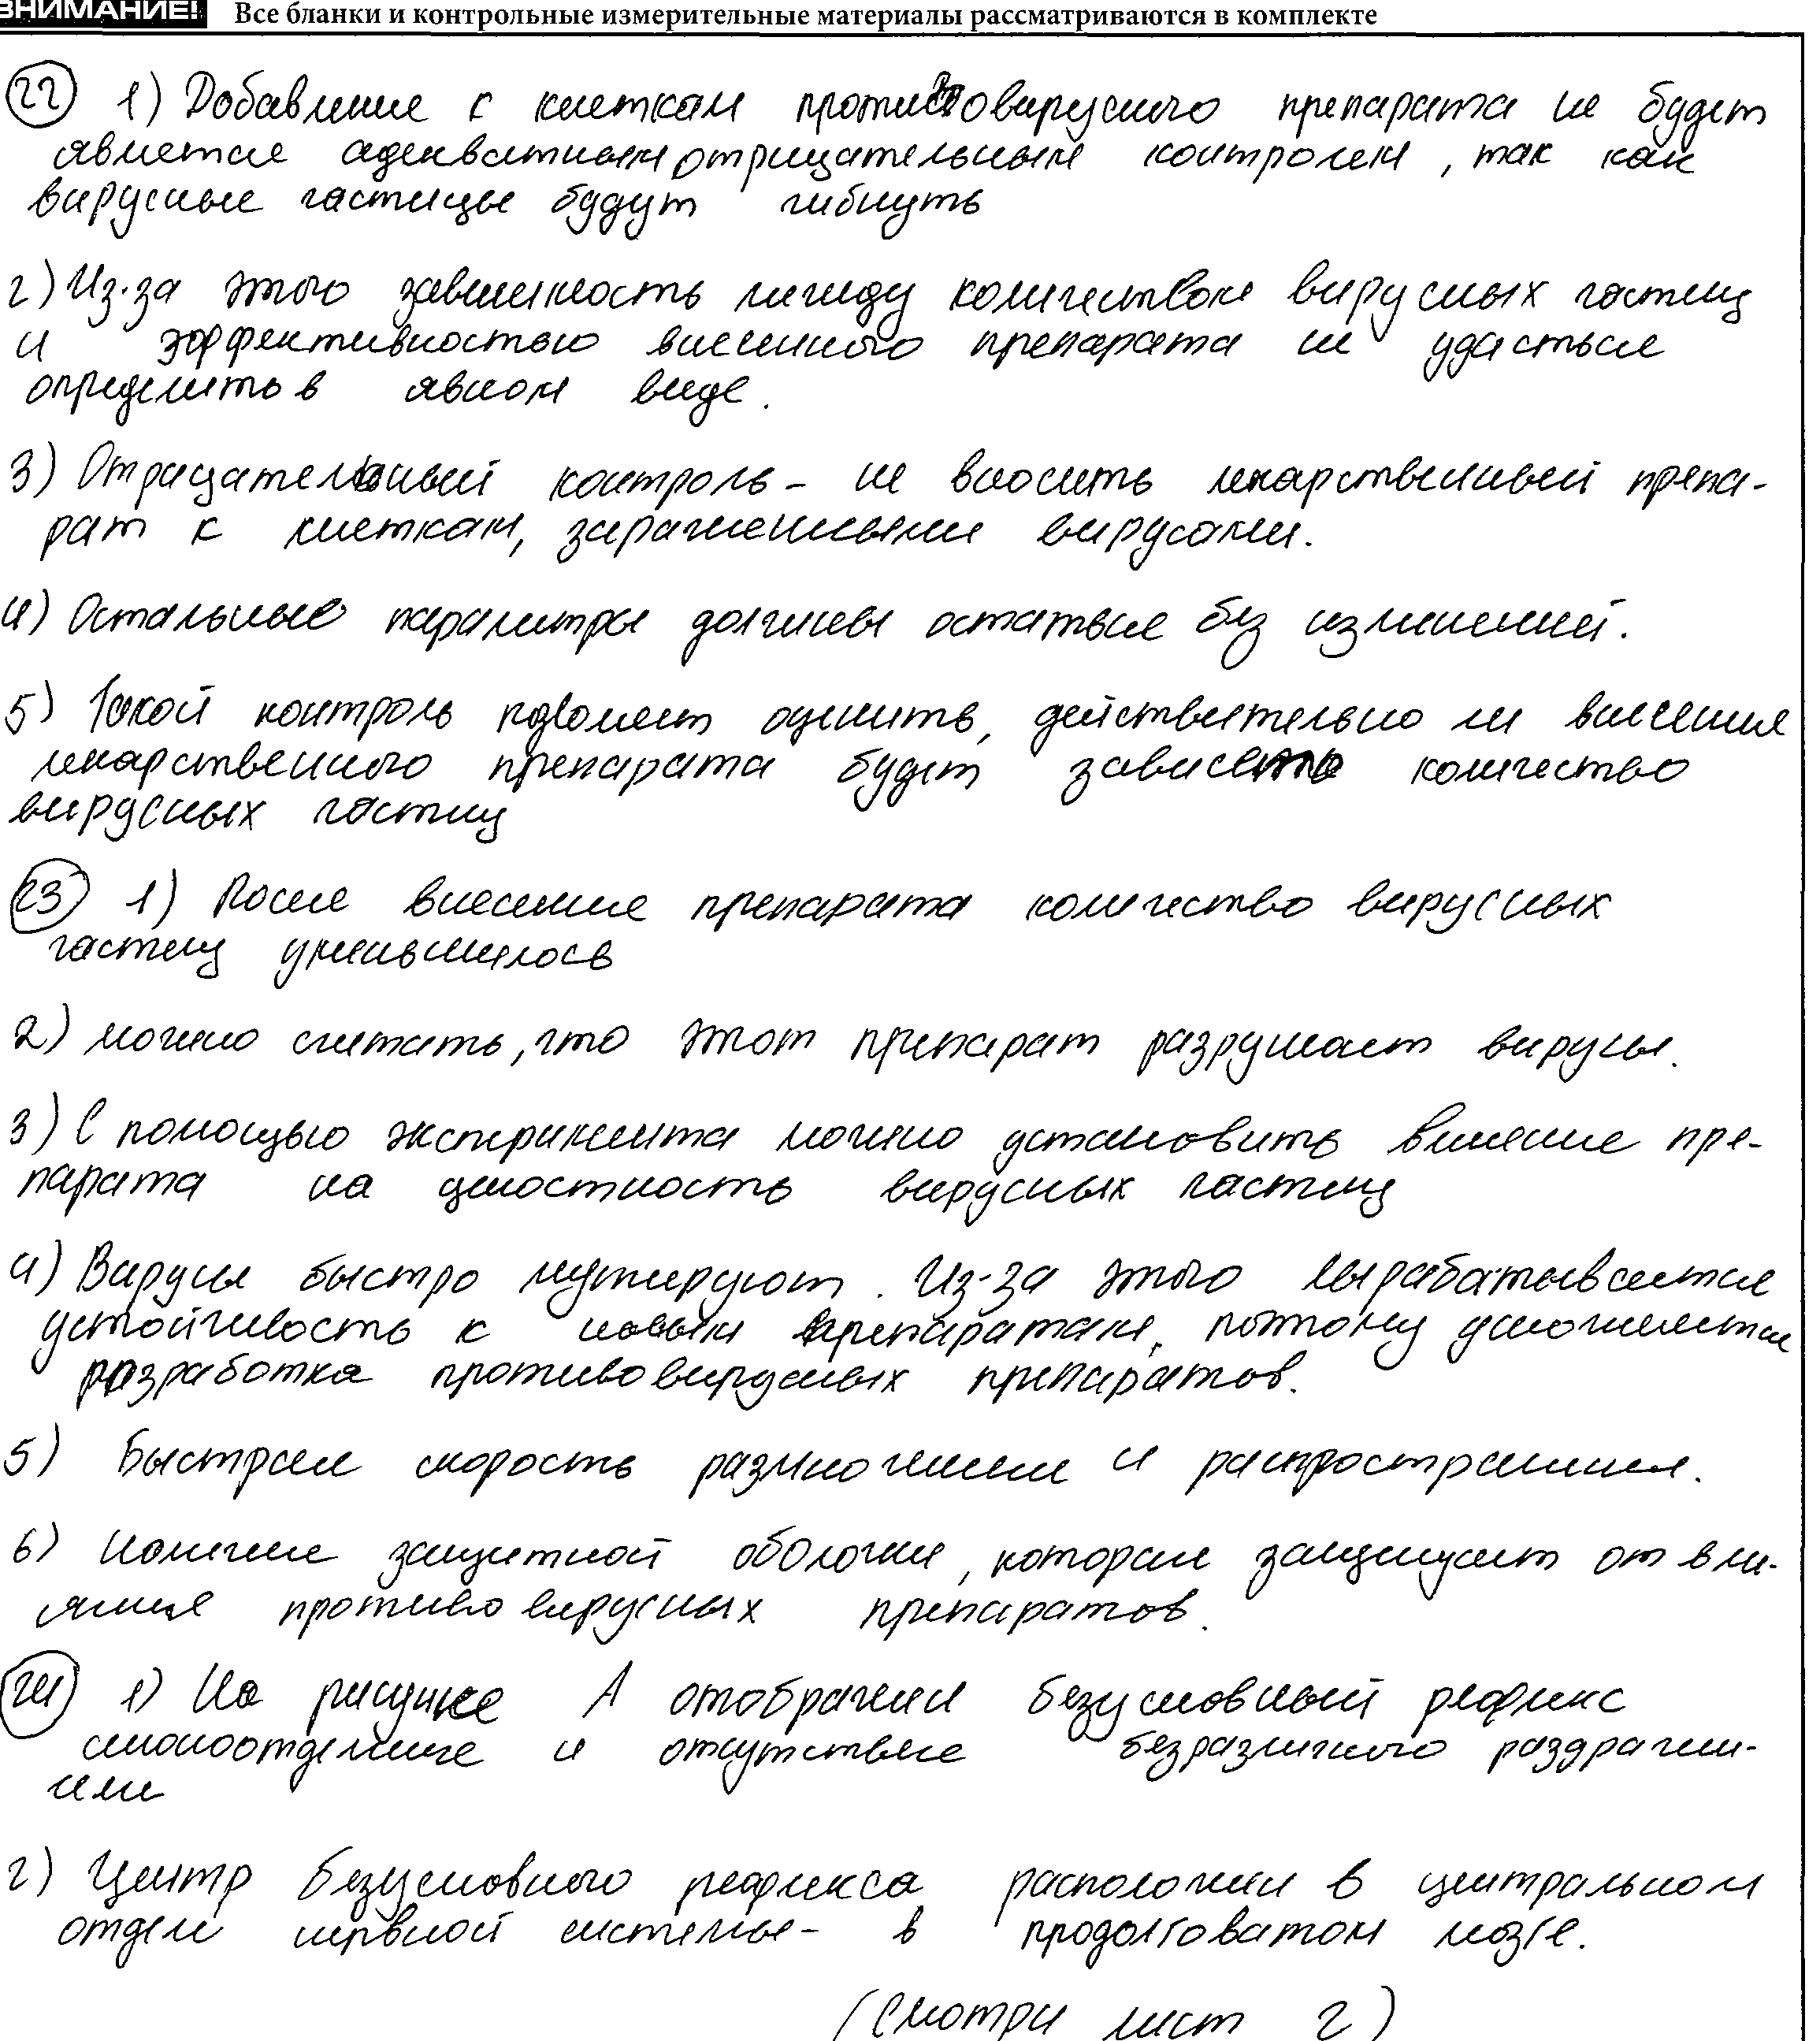 ВНИМАНИЕ! Все бланки и контрольные измерительные материалы рассматриваются в комплекте
22 1) Добавление к клеткам противовирусного препарата не будет
является адекватным отрицательным контролем, так как
вирусные частицы будут гибнуть
2) Из-за этого зависимость между количеством вирусных частиц
и эффективностью внесенного препарата не удасться
определить в явном виде.
3) Отрицательный контроль - не вносить лекарственный препа-
рат к клеткам, зараженными вирусами.
4) Остальные параметры должны остаться без изменений.
5) Такой контроль позволяет оценить, действительно ли внесения
лекарственного препарата будет зависеть количество
вирусных частиц
23 1) После внесение препарата количество вирусных
частиц уменьшилось
2) можно считать, что этот препарат разрушает вирусы.
3) С помощью эксперимента можно установить влияние пре-
парата на целостность вирусных частиц
4) Вирусы быстро мутируют. Из-за этого вырабатывается
устойчивость к новым препаратам, поэтому усложняется
разработка противовирусных препаратов.
5) Быстрая скорость размножения и распространения.
6) Наличие защитной оболочки, которая защищает от вли-
яния противовирусных препаратов.
24 1) На рисунке А отображен безусловный рефлекс
слюноотделение и отсутствие безразличного раздражи-
теля
2) Центр безусловного рефлекса расположен в центральном
отделе нервной системы - в продолговатом мозге.
(Смотри лист 2)